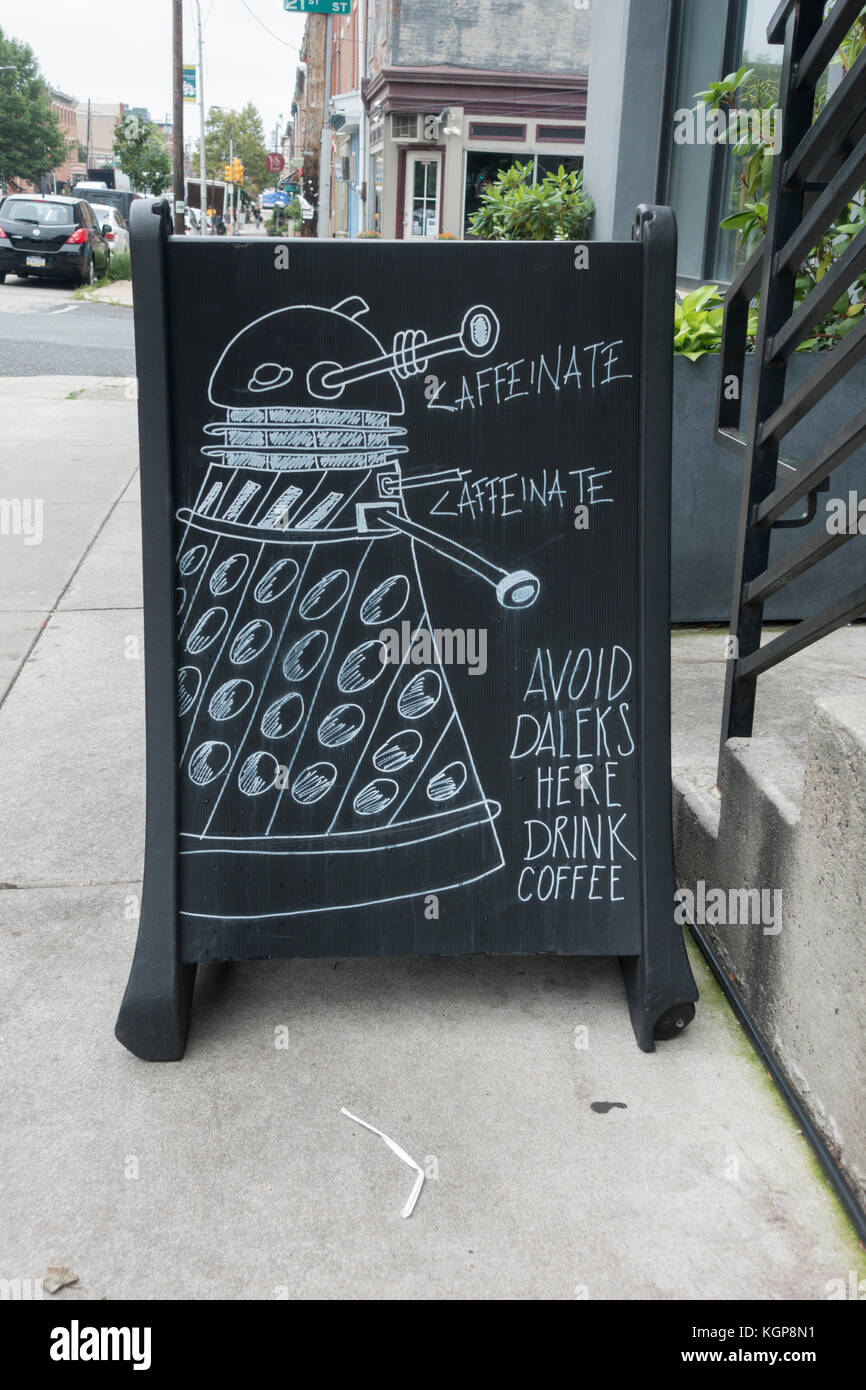 21ST ST
CAFFEINATE
CAFFEINATE
AVOID
DALEKS
HERE
DRINK
COFFEE
alamy
alamy
Image ID: KGP8N1
www.alamy.com